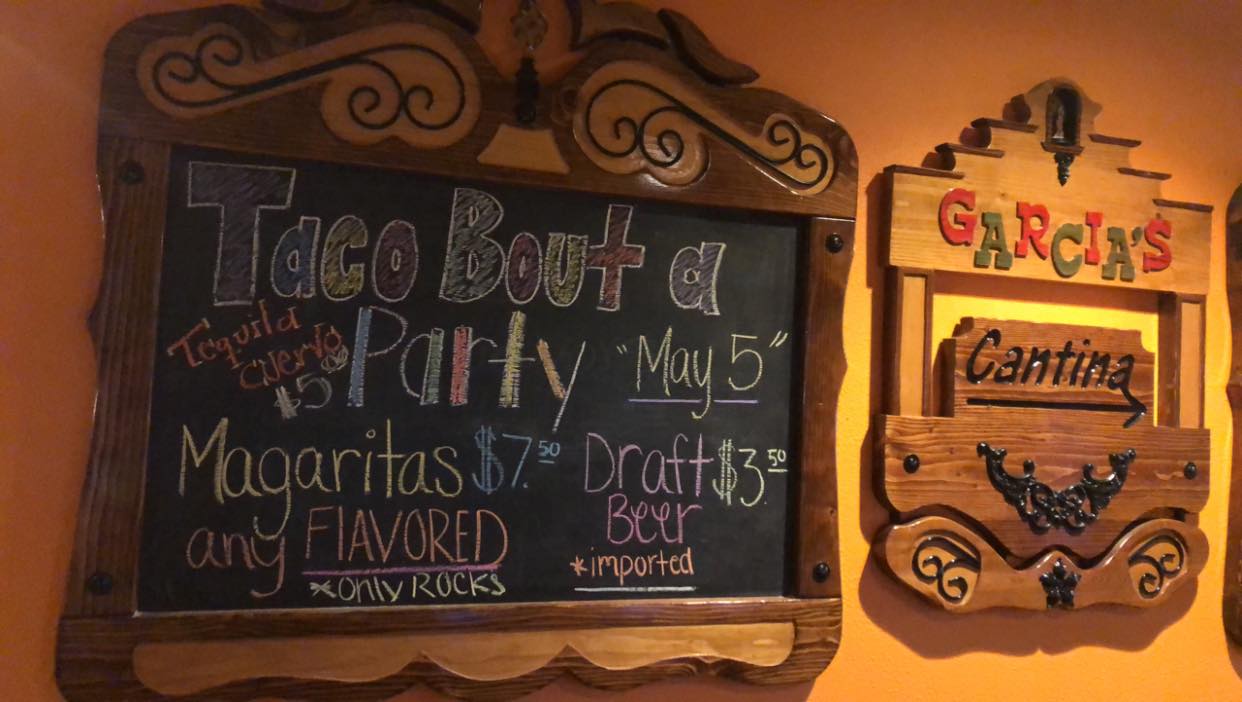 Taco Bout a
Party "May 5"
Tequila
Cuervo
$5
Magaritas $7.50
any FlAVORED
*only ROCKS
Draft $3.50
Beer
*imported
GARCIA'S
Cantina